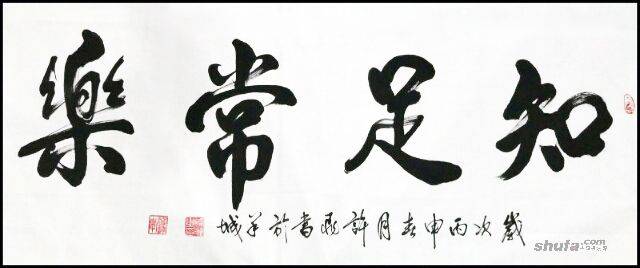 知足常樂
歲次丙申春月許書於羊城
shufa.com